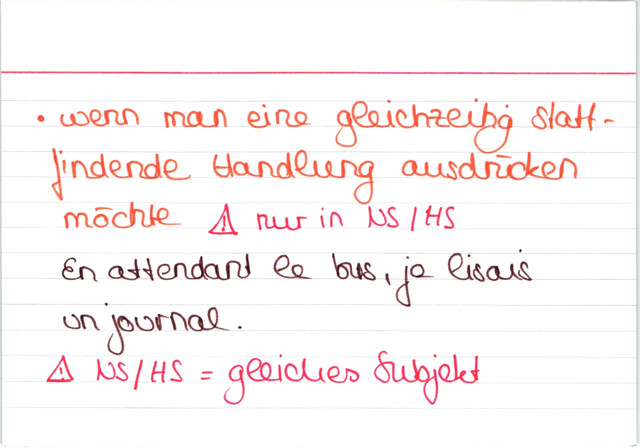 • wenn man eine gleichzeitig statt-
findende Handlung ausdrücken
möchte ⚠ nur in NS/HS
En attendant le bus, je lisais
un journal.
⚠ NS/HS = gleiches Subjekt